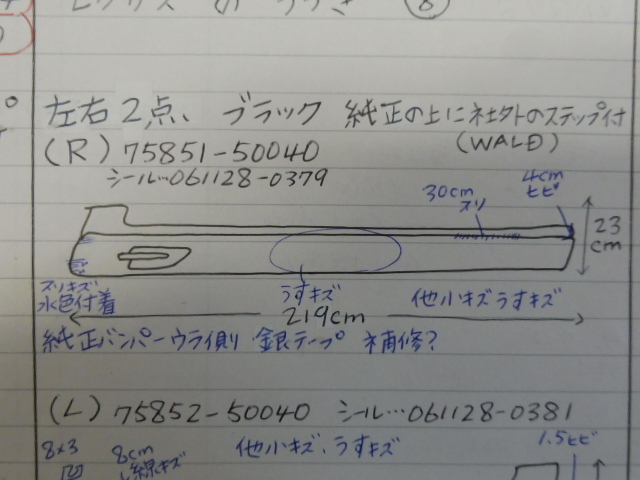 ⑧
左右2点、ブラック 純正の上に社外のステップ付
(WALD)
(R) 75851-50040
シール…061128-0379
30cm
スリ
4cm
ヒビ
23
cm
スリキズ
水色付着
うすキズ
他小キズうすキズ
219cm
純正バンパーウラ側 銀テープ 補修?
(L) 75852-50040 シール…061128-0381
8×3
凹
8cm
線キズ
他小キズ、うすキズ
1.5ヒビ